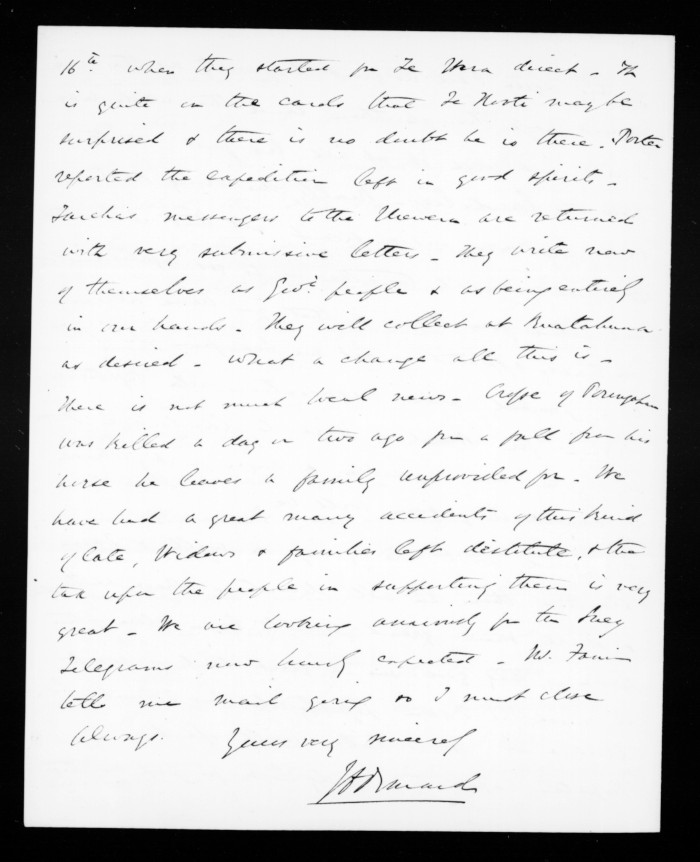 16th when they started for Te Wera direct - It
is quite in the cards that Te Kooti may be
surprised & there is no doubt he is there. Porter
reported the expedition left in good spirits -
Tareha's messengers to the Urewera are returned
with very submissive letters - They write now
of themselves as Govt people & as being entirely
in our hands - They will collect at Ruatahuna
as desired - What a change all this is -
There is not much local news - Crosse of Porangahau
was killed a day or two ago from a fall from his
horse he leaves a family unprovided for - We
have had a great many accidents of this kind
of late, Widows & families left destitute, & the
tax upon the people in supporting them is very
great - We are looking anxiously for the Suez
Telegrams now hourly expected - Mr.
tells me mail going so I must close
Always. Yours very sincerely
JDOrmond